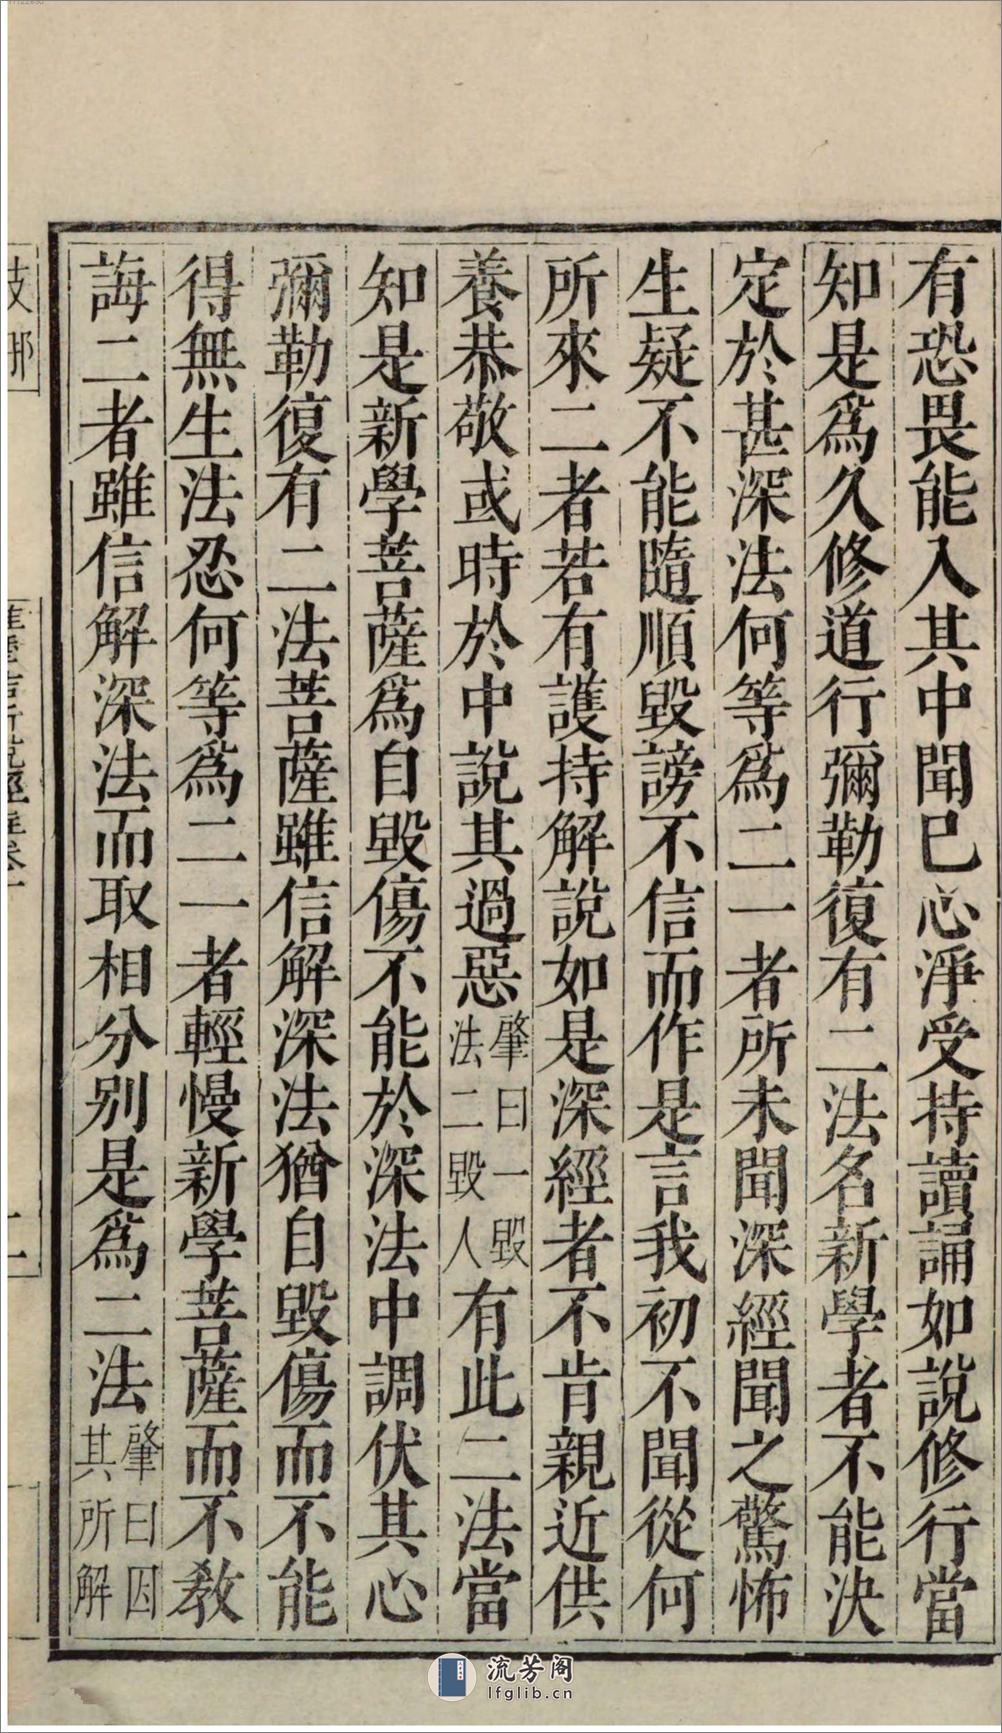 有恐畏能入其中聞已心淨受持讀誦如說修行當
知是爲久修道行彌勒復有二法名新學者不能決
定於甚深法何等爲二一者所未聞深經聞之驚怖
生疑不能隨順毀謗不信而作是言我初不聞從何
所來二者若有護持解說如是深經者不肯親近供
養恭敬或時於中說其過惡肇曰一毀法二毀人有此二法當
知是新學菩薩爲自毀傷不能於深法中調伏其心
彌勒復有二法菩薩雖信解深法猶自毀傷而不能
得無生法忍何等爲二一者輕慢新學菩薩而不教
誨二者雖信解深法而取相分別是爲二法肇曰因其所解
二
流芳阁
lfglib.cn